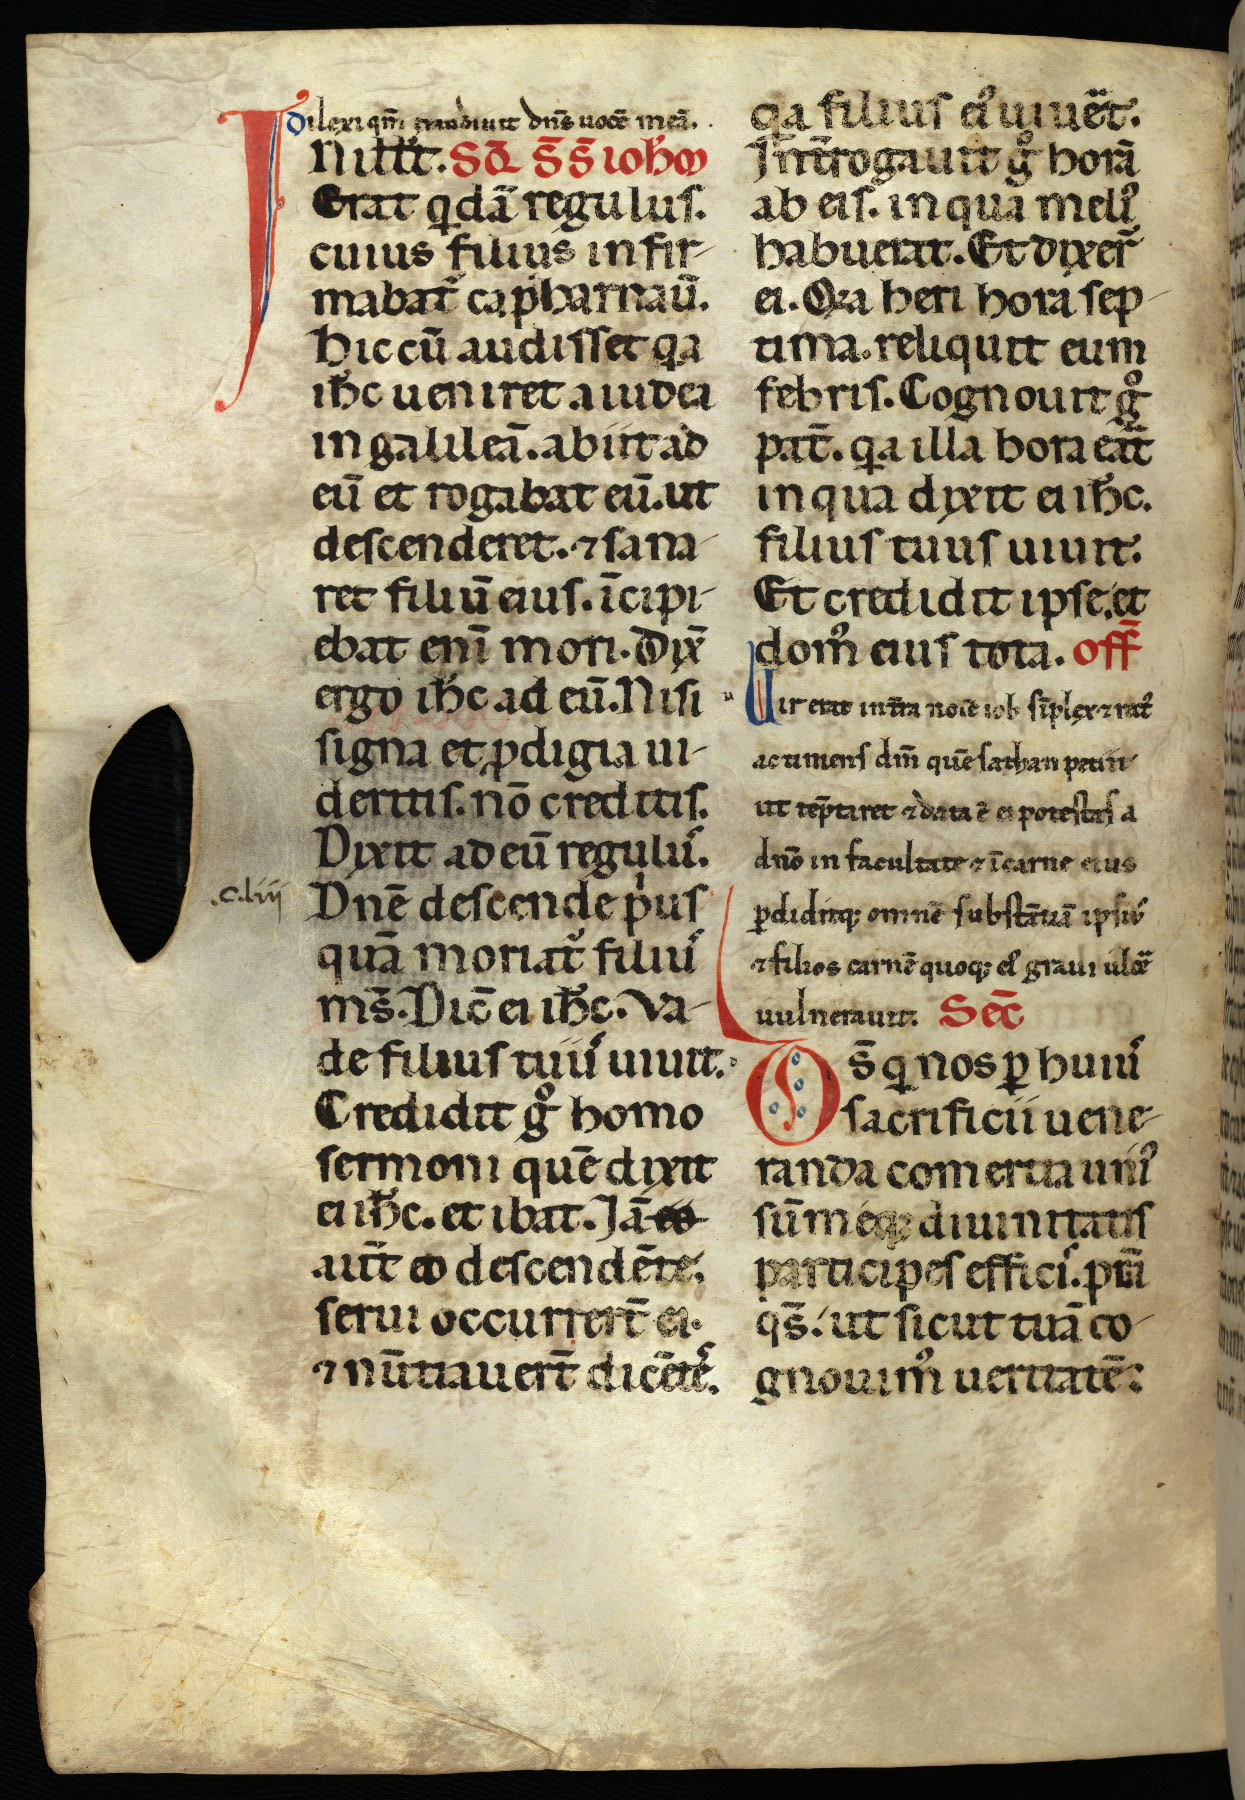 Dilexi qm̄ exaudiuit dn̄s uocē meā.
In illt̄. Sc̄dm s̄. s̄. ioh̄em
Erat qdā regulus.
cuius filius infir-
mabat᷑ capharnaū.
Hic cū audisset qa
ih̄c ueniret a iudea
in galileā. abiit ad
eū et rogabat eū. ut
descenderet. ⁊ sana-
ret filiū eius. īcipi-
ebat eni᷑ mori. Dix̄
ergo ih̄c ad eū. Nisi
signa et ꝓdigia ui-
deritis. nō creditis.
Dixit ad eū regulus.
.c.liij Dn̄e descende pius
quā moriat᷑ filius
ms̄. Dic̄ ei ih̄c. Va-
de filius tuus uiuit.
Credidit gͦ homo
sermoni quē dixit
ei ih̄c. et ibat. Jā eo
aut̄ eo descendēte.
serui occurrert̄ ei.
⁊ nūtiauert̄ dicētes.
qa filius eꝰ uiuēt.
Int̄rogauit gͦ horā
ab eis. in qua meliꝰ
habuerat. Et dixer̄
ei. Qa heri hora sep-
tima. reliquit eum
febris. Cognouit gͦ
pat̄. qa illa hora erat̄
in qua dixit ei ih̄c.
filius tuus uiuit.
Et credidit ipse. et
domꝰ eius tota. off̄
Vir erat in t̄ra noīe iob sīplex ⁊ rectꝰ
ac timens dm̄ quē sathan petiit
ut tēptaret ⁊ data ē ei potestas a
dn̄o in facultate ⁊ ī carne eius
ꝑdiditqꝫ omnē substātiā ipsiꝰ
⁊ filios carnē quoqꝫ eꝰ graui ulcē
uulnerauit. Sec̄
Ds̄ qi nos ꝑ huius
sacrificii uene-
randa comertia uniꝰ
sūmeqꝫ diuinitatis
participes efficis. pta
qs̄. ut sicut tuā co-
gnouimꝰ ueritatē: